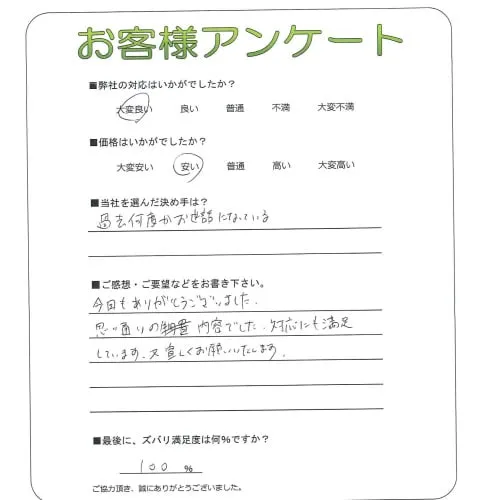 お客様アンケート
■弊社の対応はいかがでしたか?
大変良い 良い 普通 不満 大変不満
■価格はいかがでしたか?
大変安い 安い 普通 高い 大変高い
■当社を選んだ決め手は?
過去何度かお世話になっている
■ご感想・ご要望などをお書き下さい。
今回もありがとうございました.
思い通りの 内容でした. 対応にも満足
しています. 又宜しくお願いいたします.
■最後に、ズバリ満足度は何%ですか?
100 %
ご協力頂き、誠にありがとうございました。